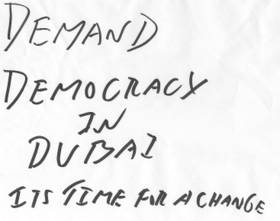 DEMAND
DEMOCRACY
IN
DUBAI
ITS TIME FOR A CHANGE